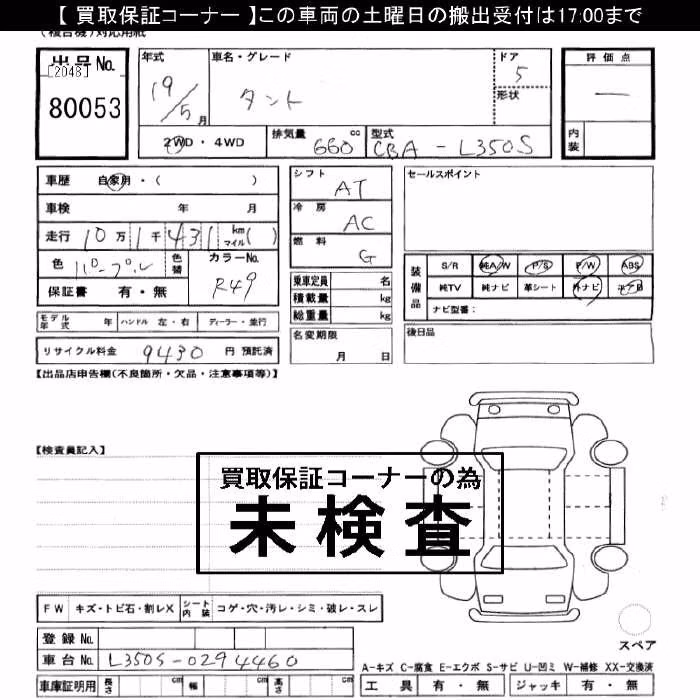 【 買取保証コーナー 】この車両の土曜日の搬出受付は17:00まで
(複合機)対応用紙
出品No.
[2048]
80053
年式
19/5月
車名・グレード
タント
ドア
5
形状
評価点
—
内装
2WD・4WD
排気量
660
cc
型式
CBA - L350S
車歴 自家用・( )
車検 年 月
走行 10万1千431 km マイル( )
色 パープル
色替
カラーNo.
R49
保証書 有・無
シフト
AT
冷房
AC
燃料
G
乗車定員 名
積載量 kg
総重量 kg
セールスポイント
装備品
S/R 純A/W P/S P/W ABS
純TV 純ナビ 革シート 外ナビ エアB
ナビ型番:
モデル年式 年 ハンドル 左・右 ディーラー・並行
リサイクル料金 9430 円 預託済
名変期限
月 日
後日品
【出品店申告欄(不良箇所・欠品・注意事項等)】
【検査員記入】
買取保証コーナーの為
未検査
FW キズ・トビ石・割レX シート内装 コゲ・穴・汚レ・シミ・破レ・スレ
登録No.
車台No. L350S-0294460
車庫証明用 長さ cm 幅 cm 高さ cm
スペア
A-キズ C-腐食 E-エクボ S-サビ U-凹ミ W-補修 XX-交換済
工具 有・無 ジャッキ 有・無